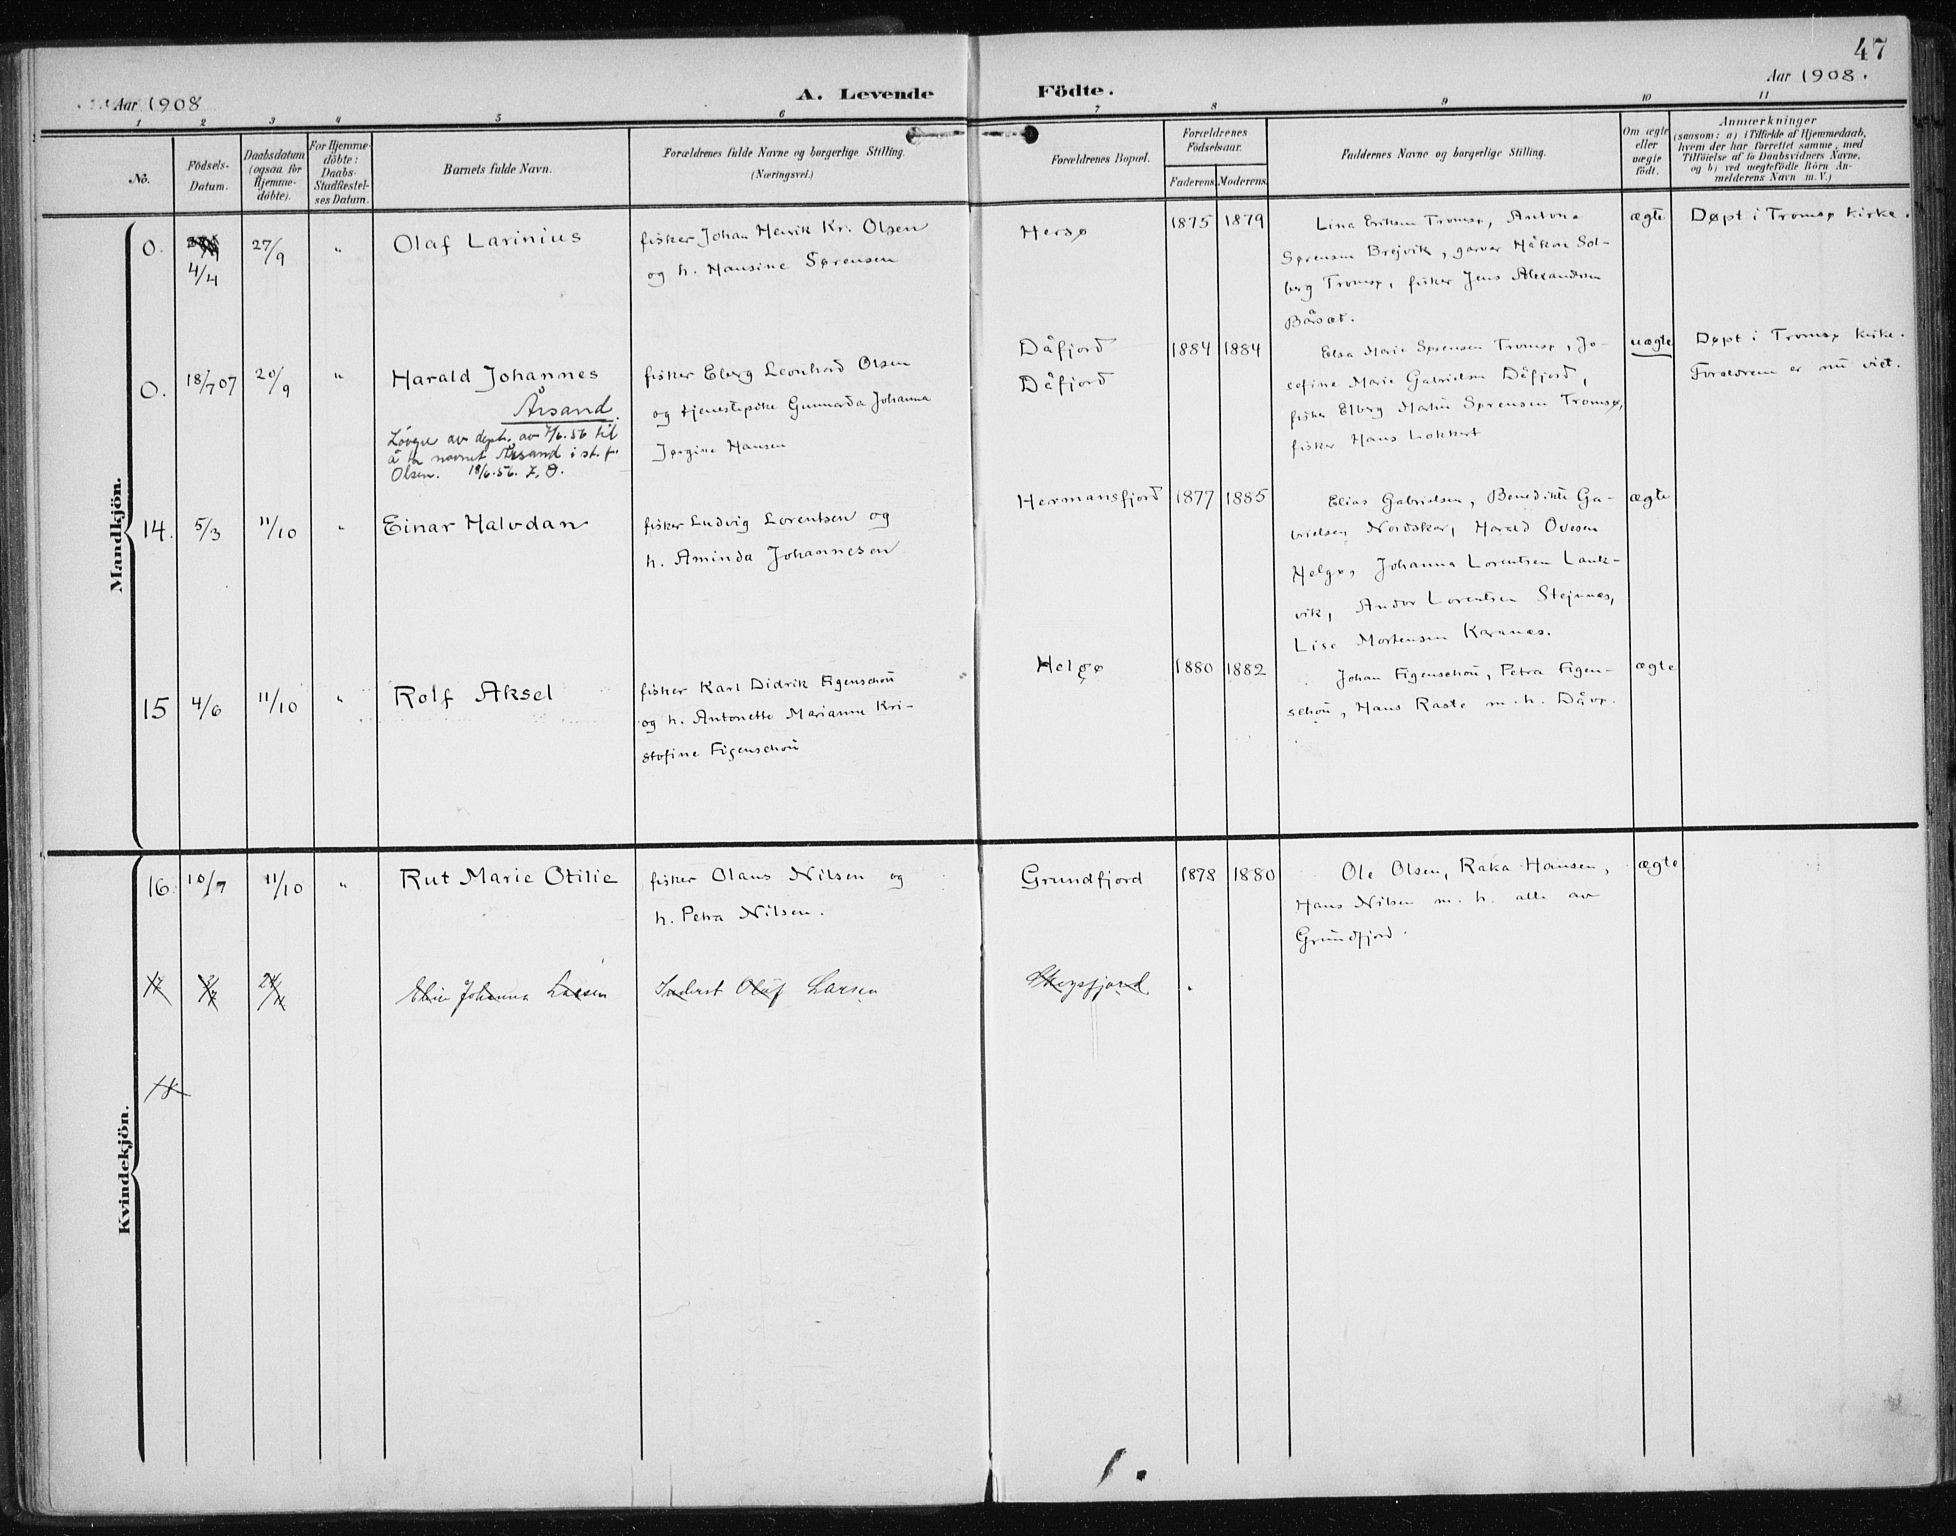 47
Aar 1908
A. Levende Födte.
Aar 1908.
1 2 3 4 5 6 7 8 9 10 11
No.
Födsels-
Datum.
Daabsdatum
(ogsaa for
Hjemme-
döbte).
For Hjemme-
döbte:
Daabs-
Stadfæstel-
ses Datum.
Barnets fulde Navn.
Forældrenes fulde Navne og borgerlige Stilling.
(Næringsvei.)
Forældrenes Bopæl.
Forældrenes
Födselsaar.
Faderens. Moderens.
Faddernes Navne og borgerlige Stilling.
Om ægte
eller
uægte
födt.
Anmærkninger
(saasom: a) i Tilfælde af Hjemmedaab,
hvem der har forrettet samme, med
Tilföielse af to Daabsvidners Navne,
og b) ved uægtefödte Börn An-
melderens Navn m. V.)
Mandkjön.
O.
4/4
27/9
"
Olaf Larinius
fisker Johan Henrik Kr. Olsen
og h. Hansine Sørensen
Hersø
1875 1879
Lina Eriksen Tromsø, Antona
Sørensen Brejvik, garver Håkon Sol-
berg Tromsø, fisker Jens Alexandersen
Bårset.
ægte
Døpt i Tromsø kirke.
O.
18/7 07
20/9
"
Harald Johannes
Årsand.
Løyve av dept. av 7/6.56 til
å ta navnet Årsand i st. f.
Olsen. 18/6.56.
fisker Eberg Leonhard Olsen
og tjenestepike Gunnarda Johanna
Jørgine Hansen
Dåfjord
Dåfjord
1884 1884
Elsa Marie Sørensen Tromsø, Jo-
sefine Marie Gabrielsen Dåfjord,
fisker Elberg Martin Sørensen Tromsø,
fisker Hans Lokkert
uægte
Døpt i Tromsø kirke.
Forældrene er nu viet.
14.
5/3
11/10
"
Einar Halvdan
fisker Ludvig Lorentsen og
h. Aminda Johannesen
Hermansfjord
1877 1885
Elias Gabrielsen, Benedikte Ga-
brielsen Nordskar, Harald Ovesen
Helgø, Johanna Lorentsen Lank-
vik, Andor Lorentsen Stejnnæs,
Lise Mortensen Karnnæs.
ægte
15
4/6
11/10
"
Rolf Aksel
fisker Karl Didrik Figenschou
og h. Antonette Marianne Kri-
stofine Figenschou
Helgø
1880 1882
Johan Figenschou, Petra Figen-
schou, Hans Raste m. h. Dåvø.
ægte
Kvindekjön.
16
10/7
11/10
"
Rut Marie Otilie
fisker Olaus Nilsen og
h. Petra Nilsen.
Grundfjord
1878 1880
Ole Olsen, Raka Hansen,
Hans Nilsen m. h. alle av
Grundfjord.
ægte
17
Johanna Larsen
Olaf Larsen
Skogsfjord
18